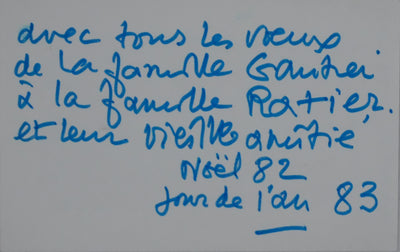 avec tous les vœux
de la famille Gautier
à la famille Ratier.
et leur vieille amitié,
Noël 82
Jour de l'an 83